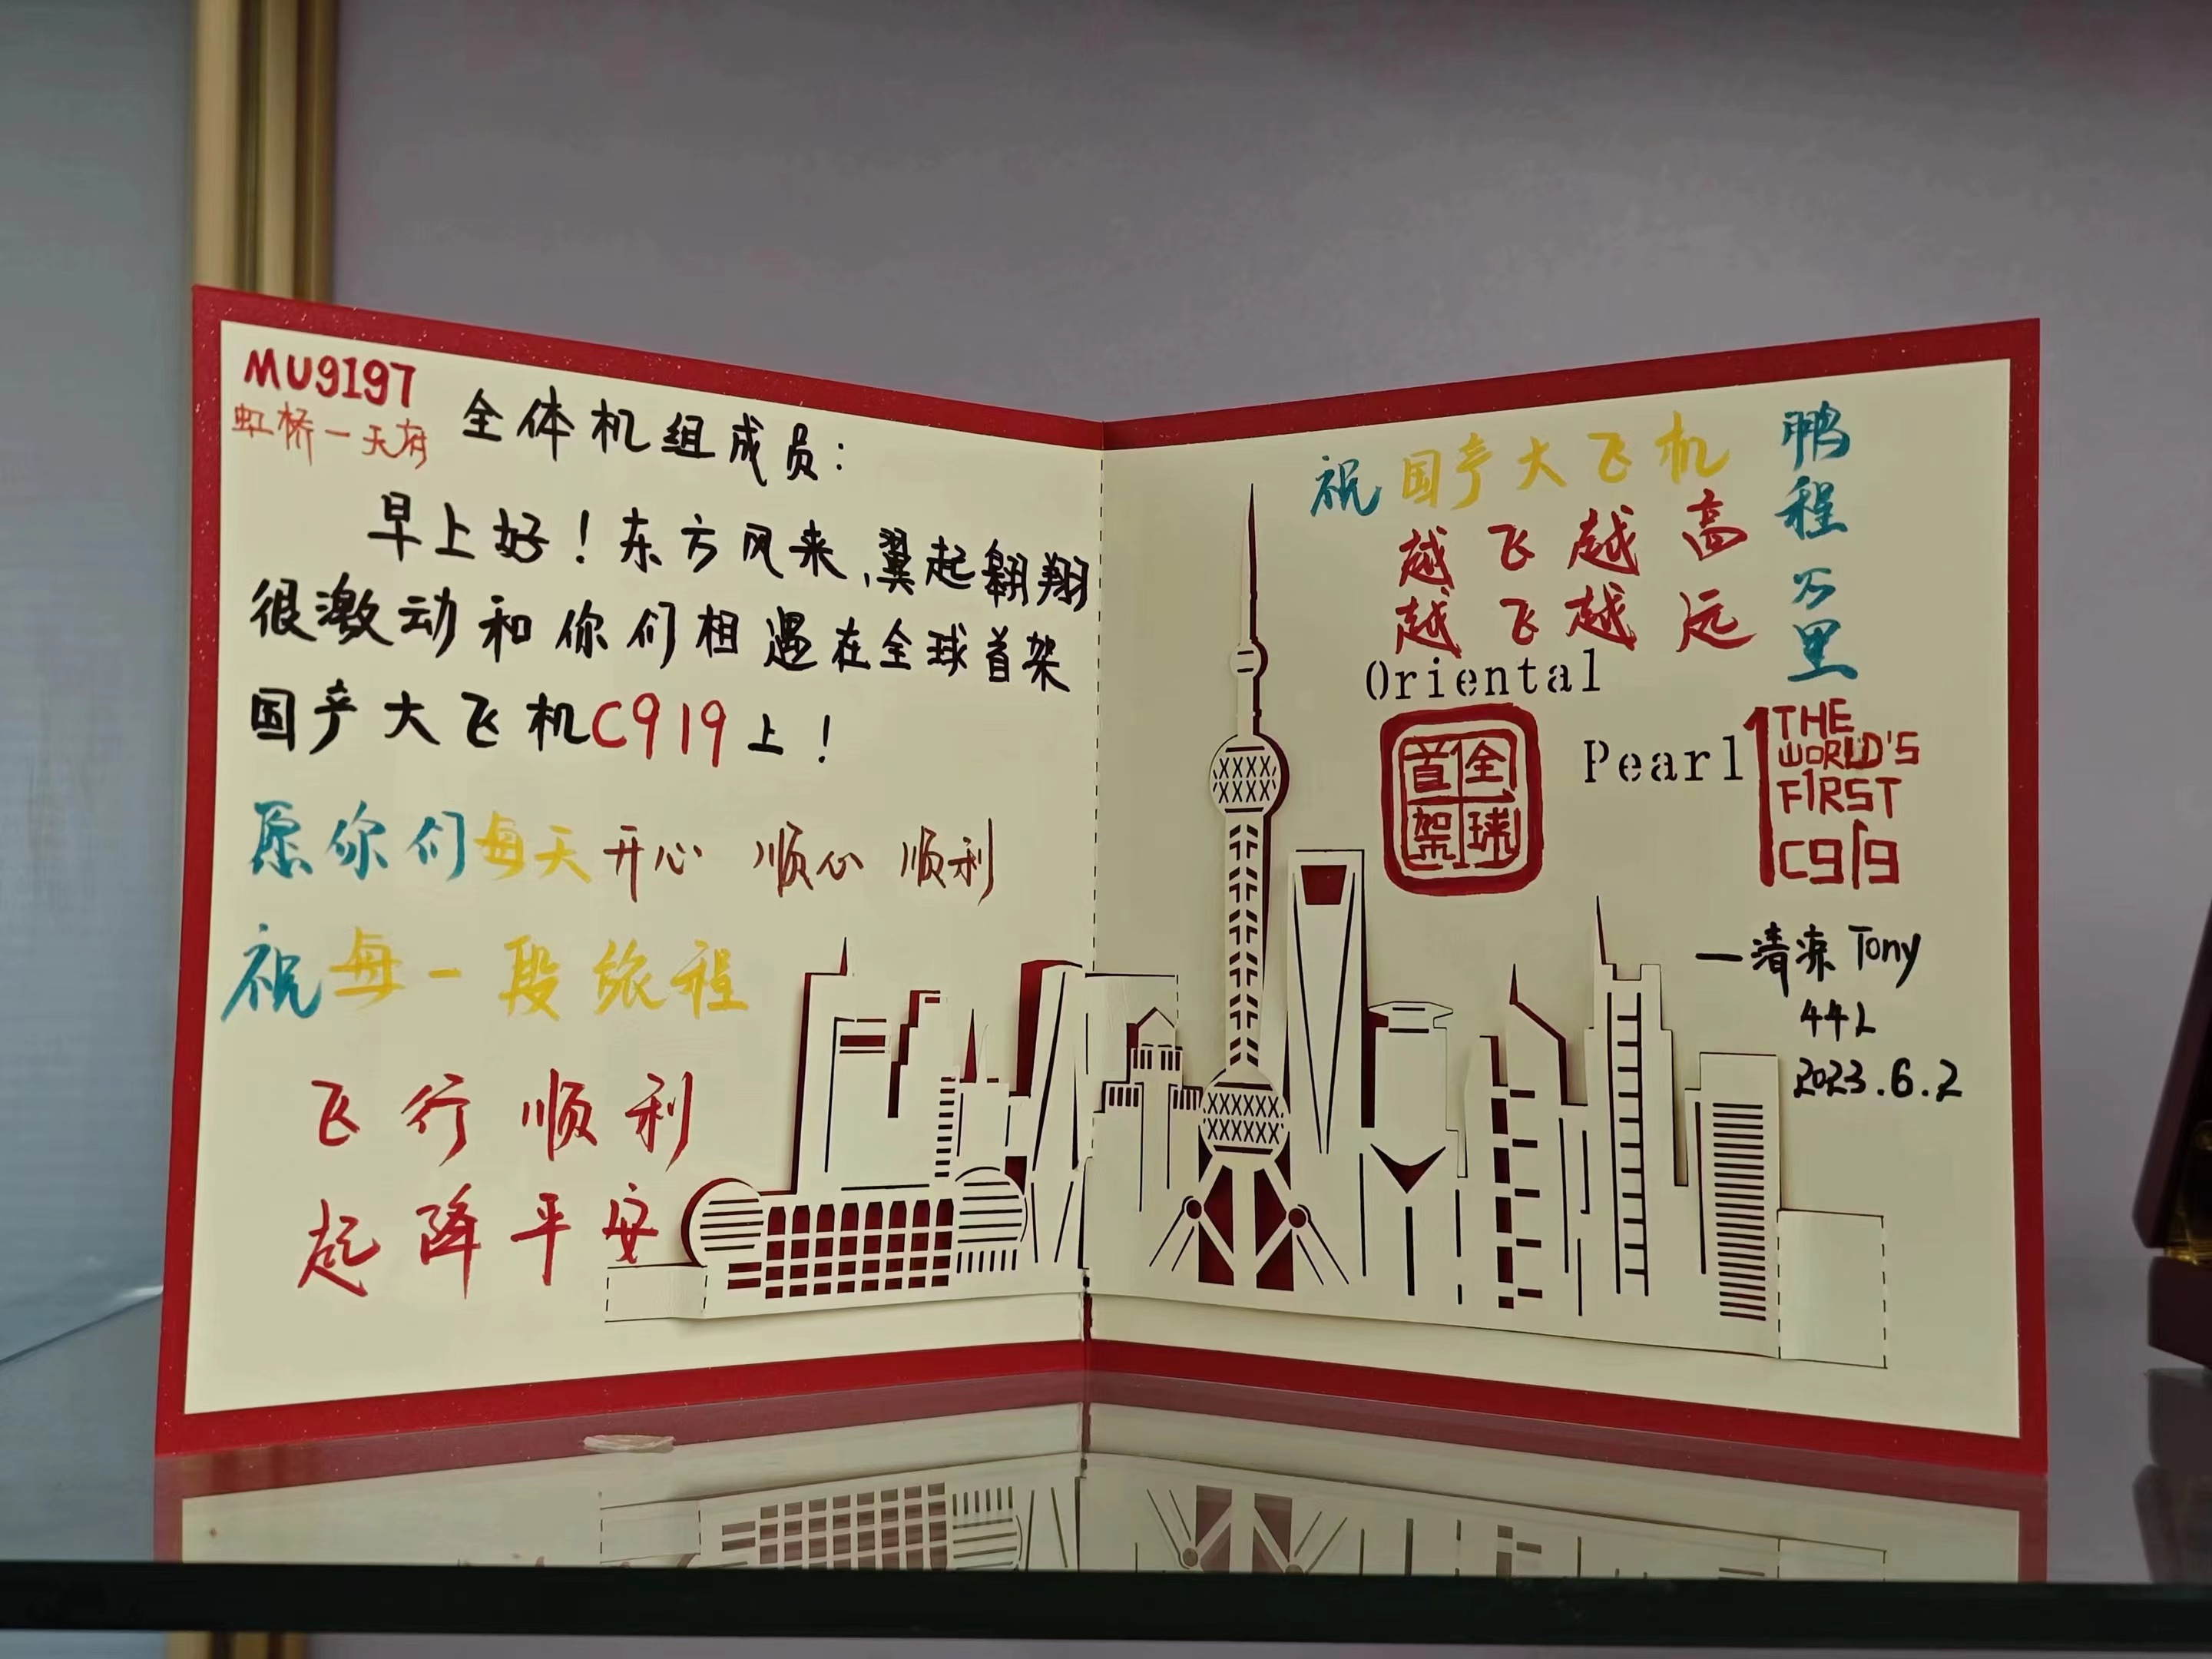 MU9197
虹桥一天府
全体机组成员：
早上好！东方风来，翼起翱翔
很激动和你们相遇在全球首架
国产大飞机C919上！
愿你们每天开心 顺心 顺利
祝每一段旅程
飞行顺利
起降平安
祝国产大飞机
越飞越高
越飞越远
鹏程万里
Oriental
Pearl
全球首架
THE
WORLD'S
FIRST
C919
—清凉 Tony
44L
2023.6.2